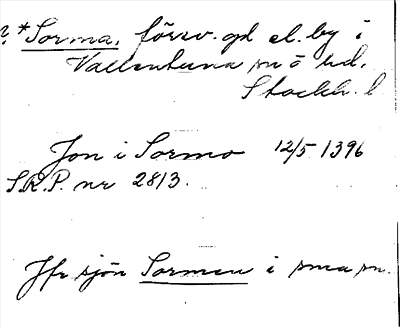 ? *Sorma, försv. gd el. by i
Vallentuna sn o hd,
Stockh. l
Jon i Sormo 12/5 1396
S.R.P. nr 2813.
Jfr sjön Sormen i sma sn.